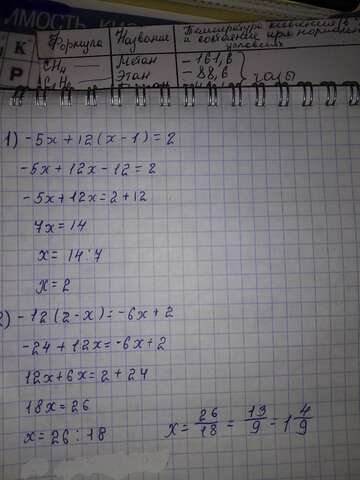 ИМОСТЬ
К
Р
Формула
Название
Температура кипения
и состояние при нормальных
условиях
CH₄
Метан
-161,6
Этан
-88,6
газы
1) -5x+12(x-1)=2
-5x+12x-12=2
-5x+12x=2+12
7x=14
x=14:7
x=2
2) -12(2-x)=-6x+2
-24+12x=-6x+2
12x+6x=2+24
18x=26
x=26:18
x=26/18=13/9=1 4/9